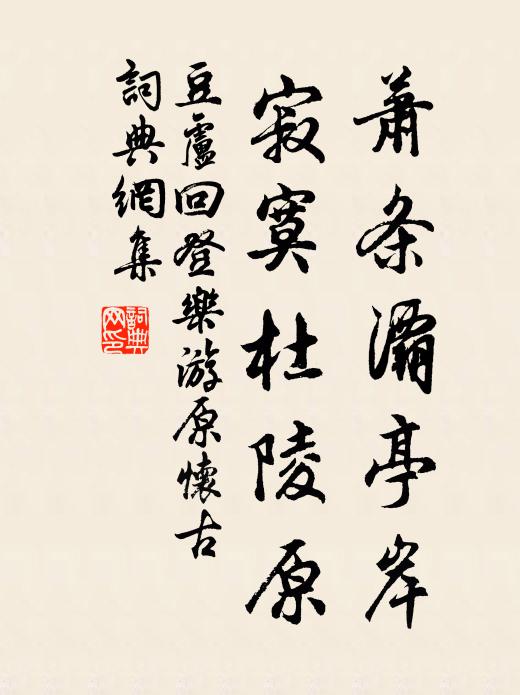 蕭条灞亭岸
寂寞杜陵原
豆盧回登樂游原懷古
詞典網集
詞典网印